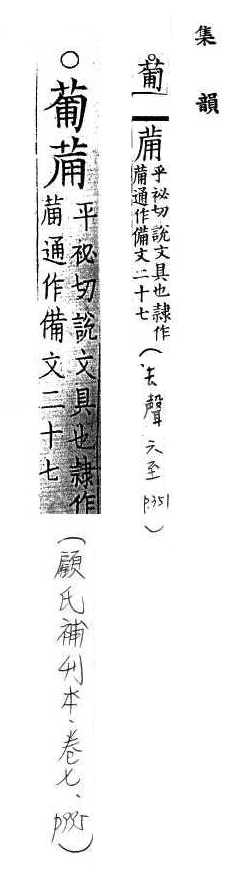 集韻
○葡
𤰇平祕切說文具也隷作
𤰇通作備文二十七
(去聲 六至 p.351)
○葡𤰇
平祕切說文具也隷作
𤰇通作備文二十七
(顧氏補刊本、卷七、